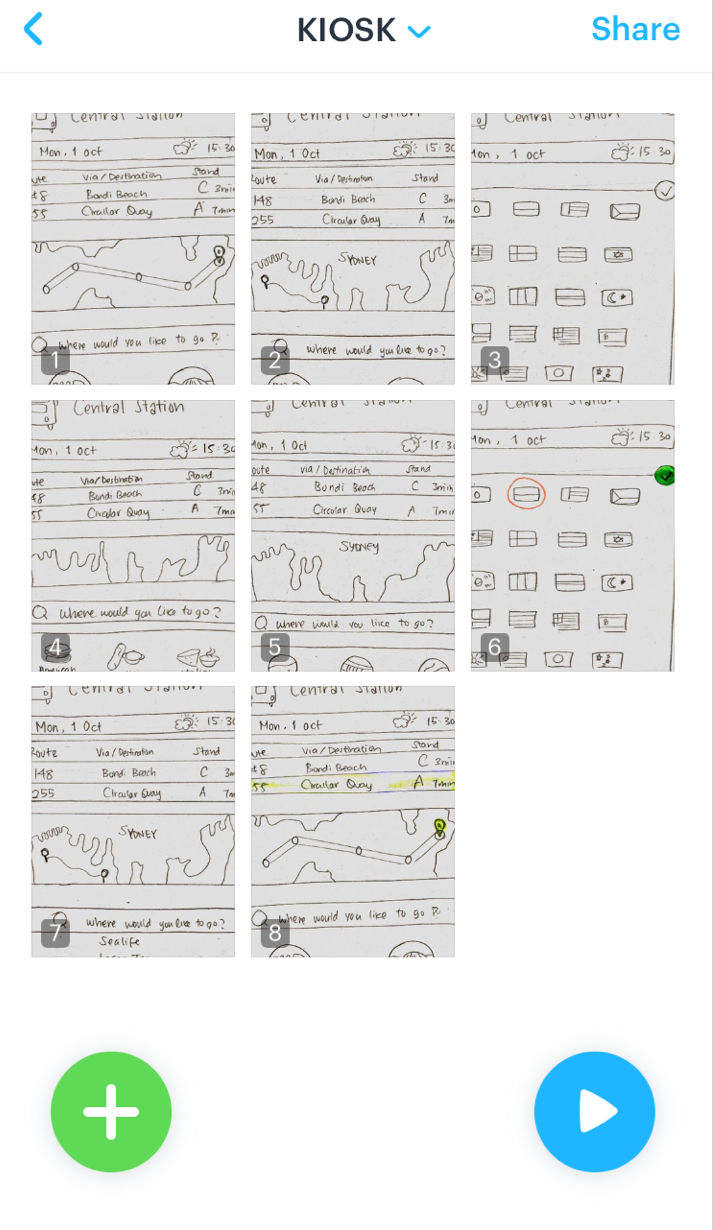 KIOSK
Share
Central Station
Mon, 1 oct 15:30
ute Via/Destination Stand
48 Bondi Beach C 3min
55 Circular Quay A 7min
Where would you like to go?
1
Central Station
Mon, 1 Oct 15:30
Route Via/Destination Stand
148 Bondi Beach C 3m
255 Circular Quay A 7m
SYDNEY
Where would you like to go?
2
Central Station
Mon, 1 oct 15:30
3
Central Station
Mon, 1 oct 15:30
ute Via/Destination Stand
48 Bondi Beach C 3min
55 Circular Quay A 7min
Where would you like to go?
4
Central Station
Mon, 1 Oct 15:3
oute Via/Destination Stand
48 Bondi Beach C 3min
55 Circular Quay A 7min
SYDNEY
Where would you like to go?
5
Central Station
Mon, 1 oct 15:30
6
Central Station
Mon, 1 Oct 15:30
Route Via/Destination Stand
148 Bondi Beach C 3m
255 Circular Quay A 7m
SYDNEY
Where would you like to go?
Sealife
7
Central Station
Mon, 1 oct 15:30
ute Via/Destination Stand
48 Bondi Beach C 3min
55 Circular Quay A 7min
Where would you like to go?
8